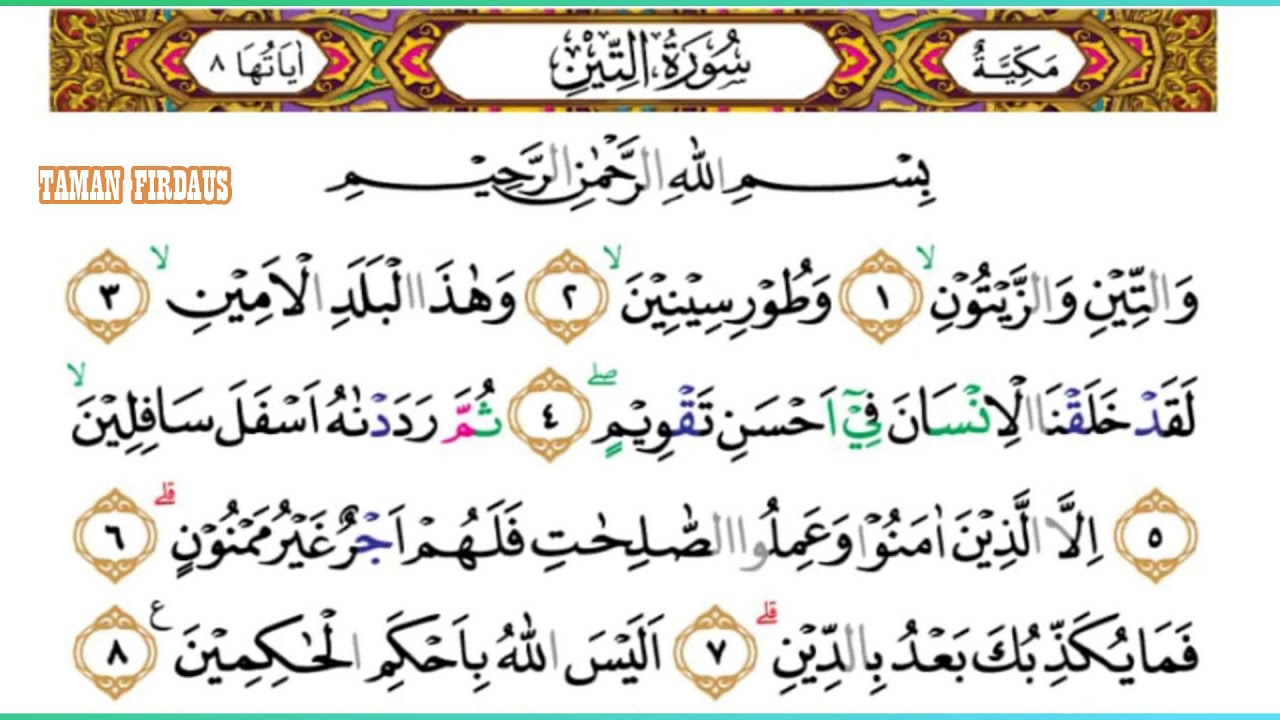 مَكِّيَّةٌ سُوْرَةُ التِّيْنِ اٰيَاتُهَا ٨
بِسْمِ اللهِ الرَّحْمٰنِ الرَّحِيْمِ
TAMAN FIRDAUS
وَالتِّيْنِ وَالزَّيْتُوْنِۙ ١ وَطُوْرِ سِيْنِيْنَۙ ٢ وَهٰذَا الْبَلَدِ الْاَمِيْنِۙ ٣
لَقَدْ خَلَقْنَا الْاِنْسَانَ فِيْٓ اَحْسَنِ تَقْوِيْمٍۖ ٤ ثُمَّ رَدَدْنٰهُ اَسْفَلَ سَافِلِيْنَۙ
٥ اِلَّا الَّذِيْنَ اٰمَنُوْا وَعَمِلُوا الصّٰلِحٰتِ فَلَهُمْ اَجْرٌ غَيْرُ مَمْنُوْنٍۗ ٦
فَمَا يُكَذِّبُكَ بَعْدُ بِالدِّيْنِۗ ٧ اَلَيْسَ اللهُ بِاَحْكَمِ الْحٰكِمِيْنَ ࣖ ٨